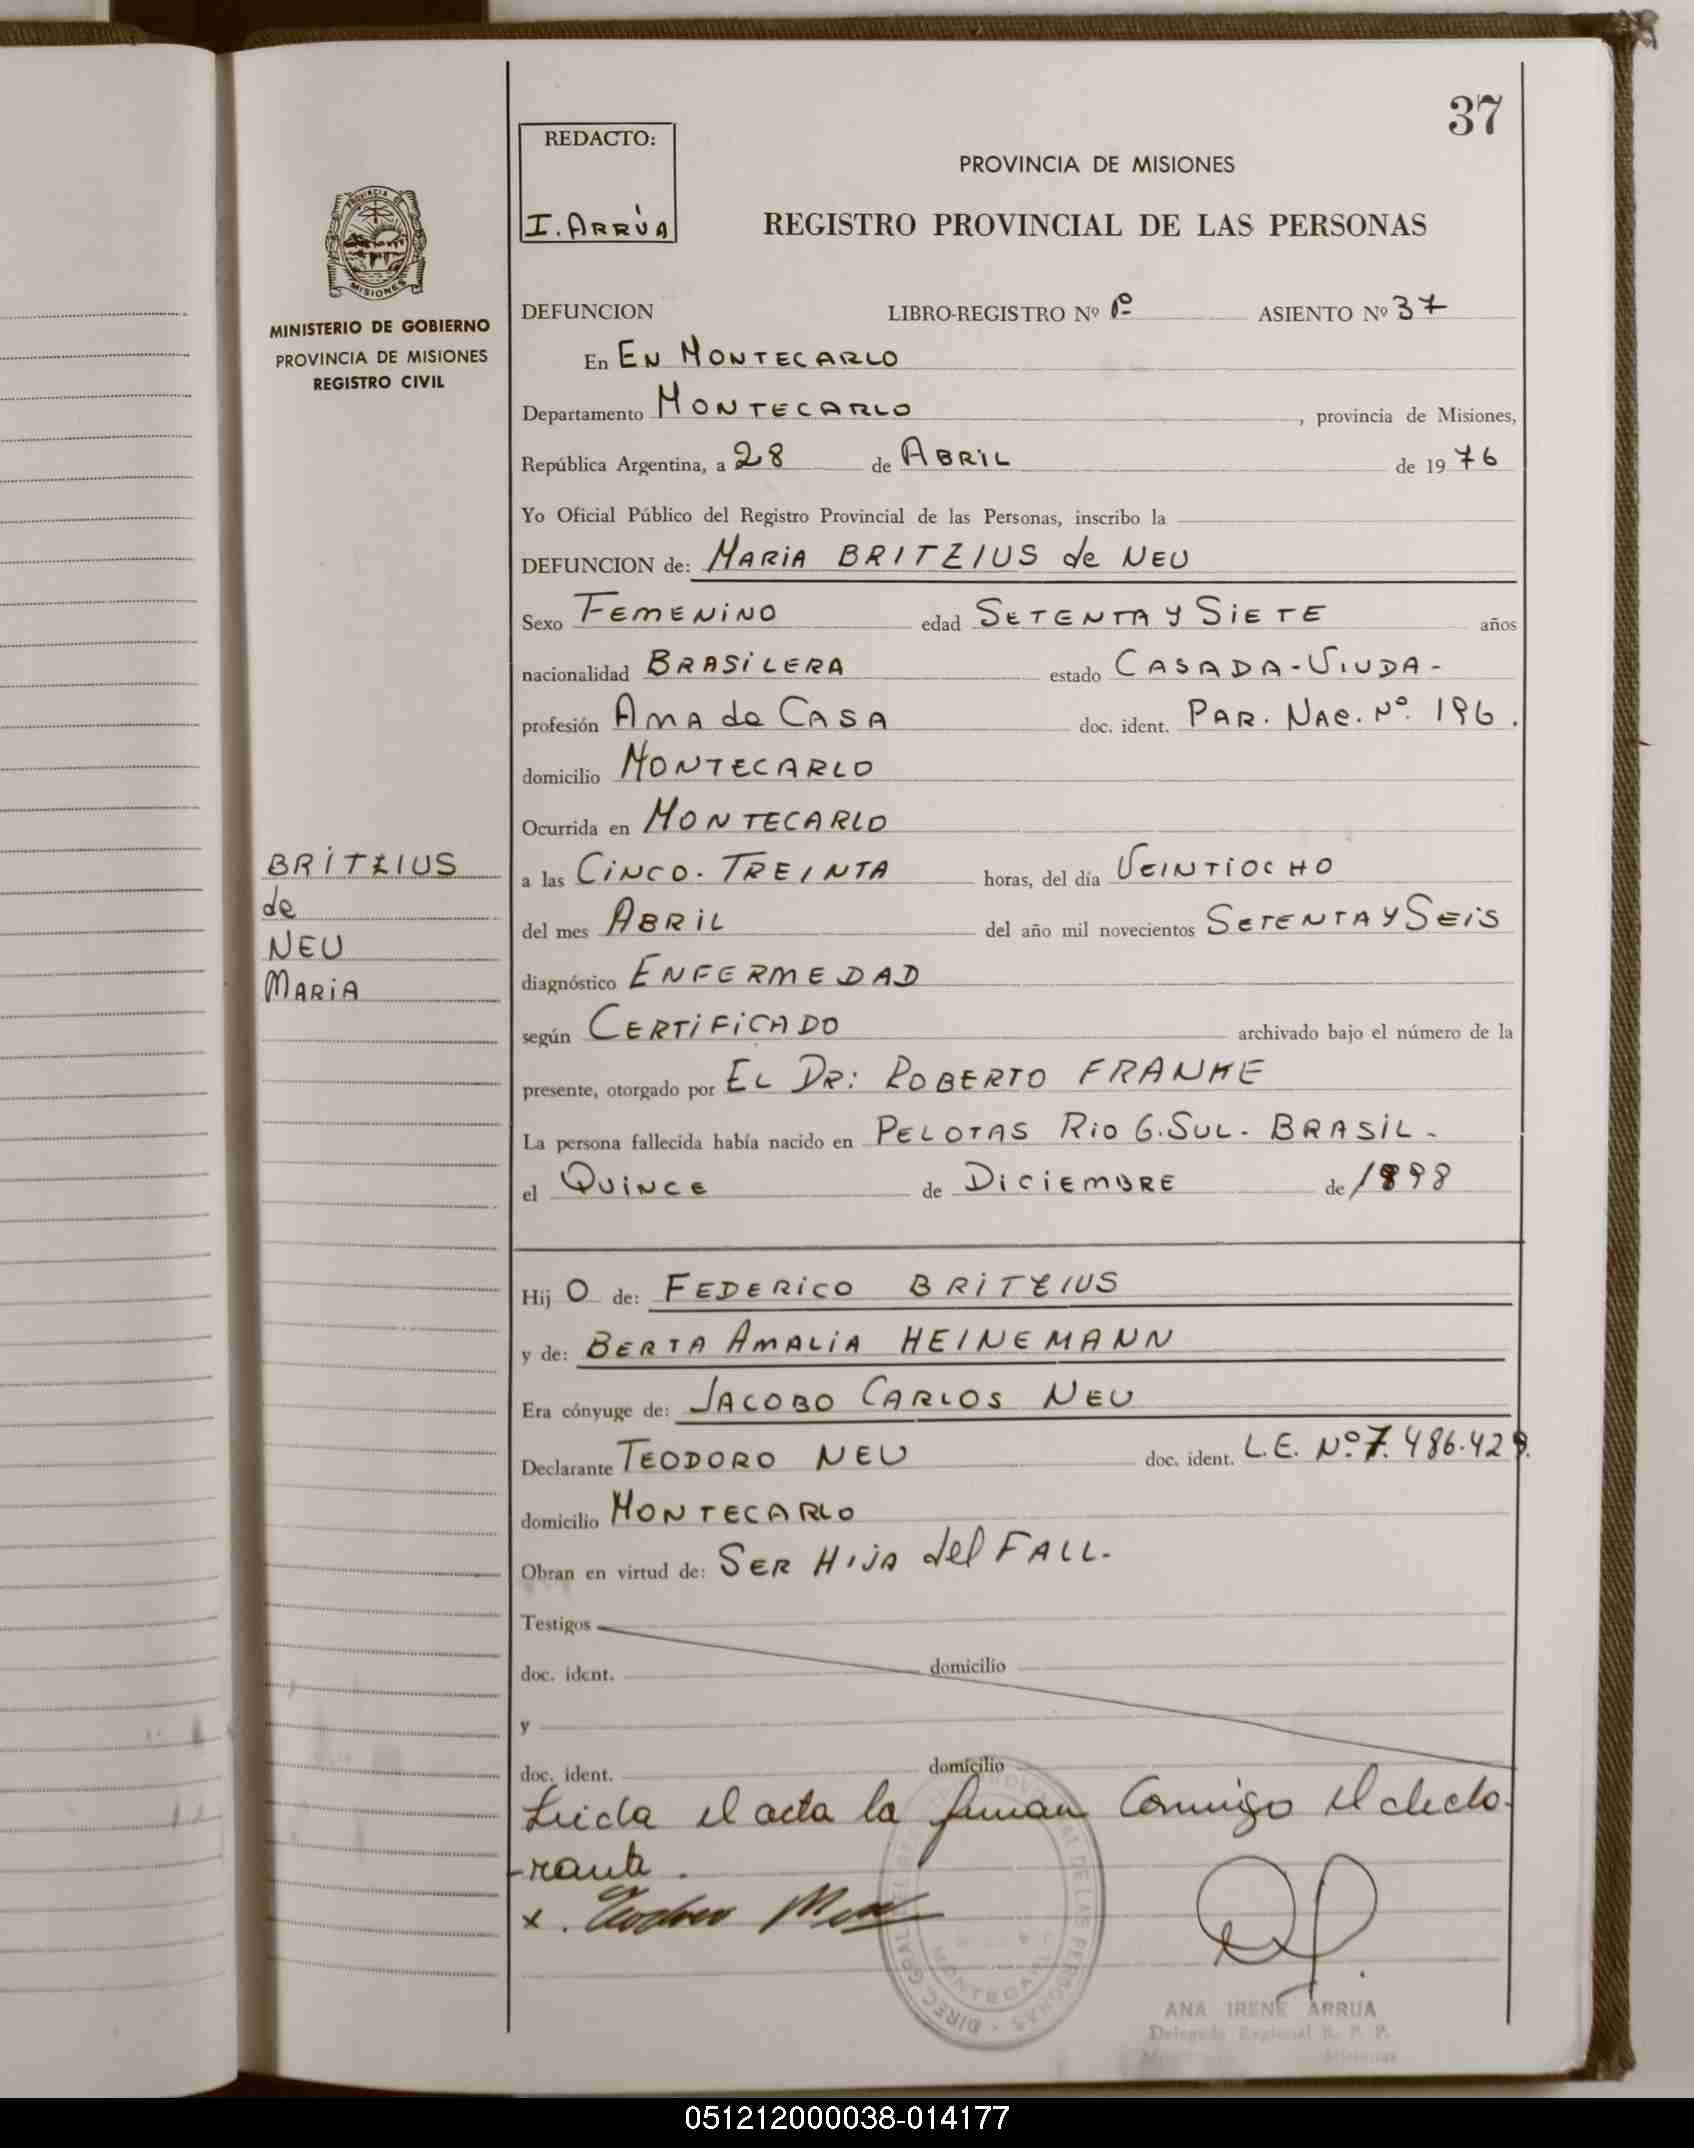 37
REDACTO:
I. ARRÚA
PROVINCIA DE MISIONES
REGISTRO PROVINCIAL DE LAS PERSONAS
PROVINCIA DE
MISIONES
MINISTERIO DE GOBIERNO
PROVINCIA DE MISIONES
REGISTRO CIVIL
DEFUNCION LIBRO-REGISTRO Nº 1º ASIENTO Nº 37
En EN MONTECARLO
Departamento MONTECARLO, provincia de Misiones,
República Argentina, a 28 de ABRIL de 1976
Yo Oficial Público del Registro Provincial de las Personas, inscribo la
DEFUNCION de: MARIA BRITZIUS de NEU
Sexo FEMENINO edad SETENTA Y SIETE años
nacionalidad BRASILERA estado CASADA-VIUDA-
profesión AMA de CASA doc. ident. PAR. NAC. Nº. 196.
domicilio MONTECARLO
Ocurrida en MONTECARLO
a las CINCO. TREINTA horas, del día VEINTIOCHO
del mes ABRIL del año mil novecientos SETENTA Y SEIS
diagnóstico ENFERMEDAD
según CERTIFICADO archivado bajo el número de la
presente, otorgado por EL DR: ROBERTO FRANKE
La persona fallecida había nacido en PELOTAS RIO G. SUL - BRASIL -
el QUINCE de DICIEMBRE de 1898
BRITZIUS
de
NEU
MARIA
Hij O de: FEDERICO BRITZIUS
y de: BERTA AMALIA HEINEMANN
Era cónyuge de: JACOBO CARLOS NEU
Declarante TEODORO NEU doc. ident. L.E. Nº 7.486.429.
domicilio MONTECARLO
Obran en virtud de: SER HIJA del FALL.
Testigos
doc. ident. domicilio
y
doc. ident. domicilio
Leida el acta la firman Conmigo el decla-
-rante.
x. Teodoro Neu
DIREC. GRAL. DEL REG. PROVINCIAL DE LAS PERSONAS
MONTECARLO
ANA IRENE ARRUA
Delegada Regional R. P. P.
Misiones
051212000038-014177